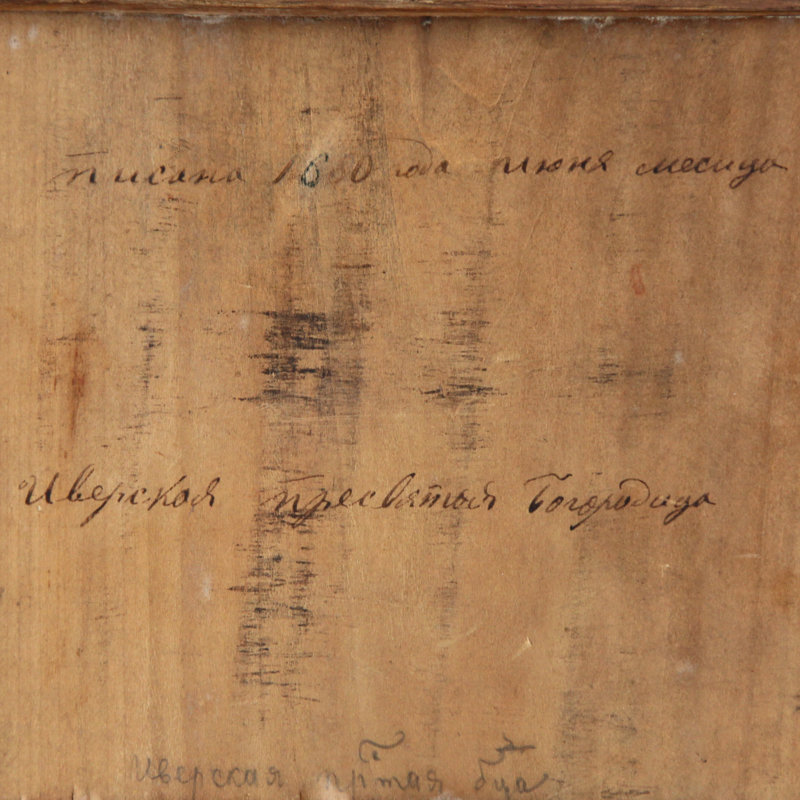 писана 1660 года июня месица
Иверская пресвятыя Богородица
Иверская прт̃ая бц̃а